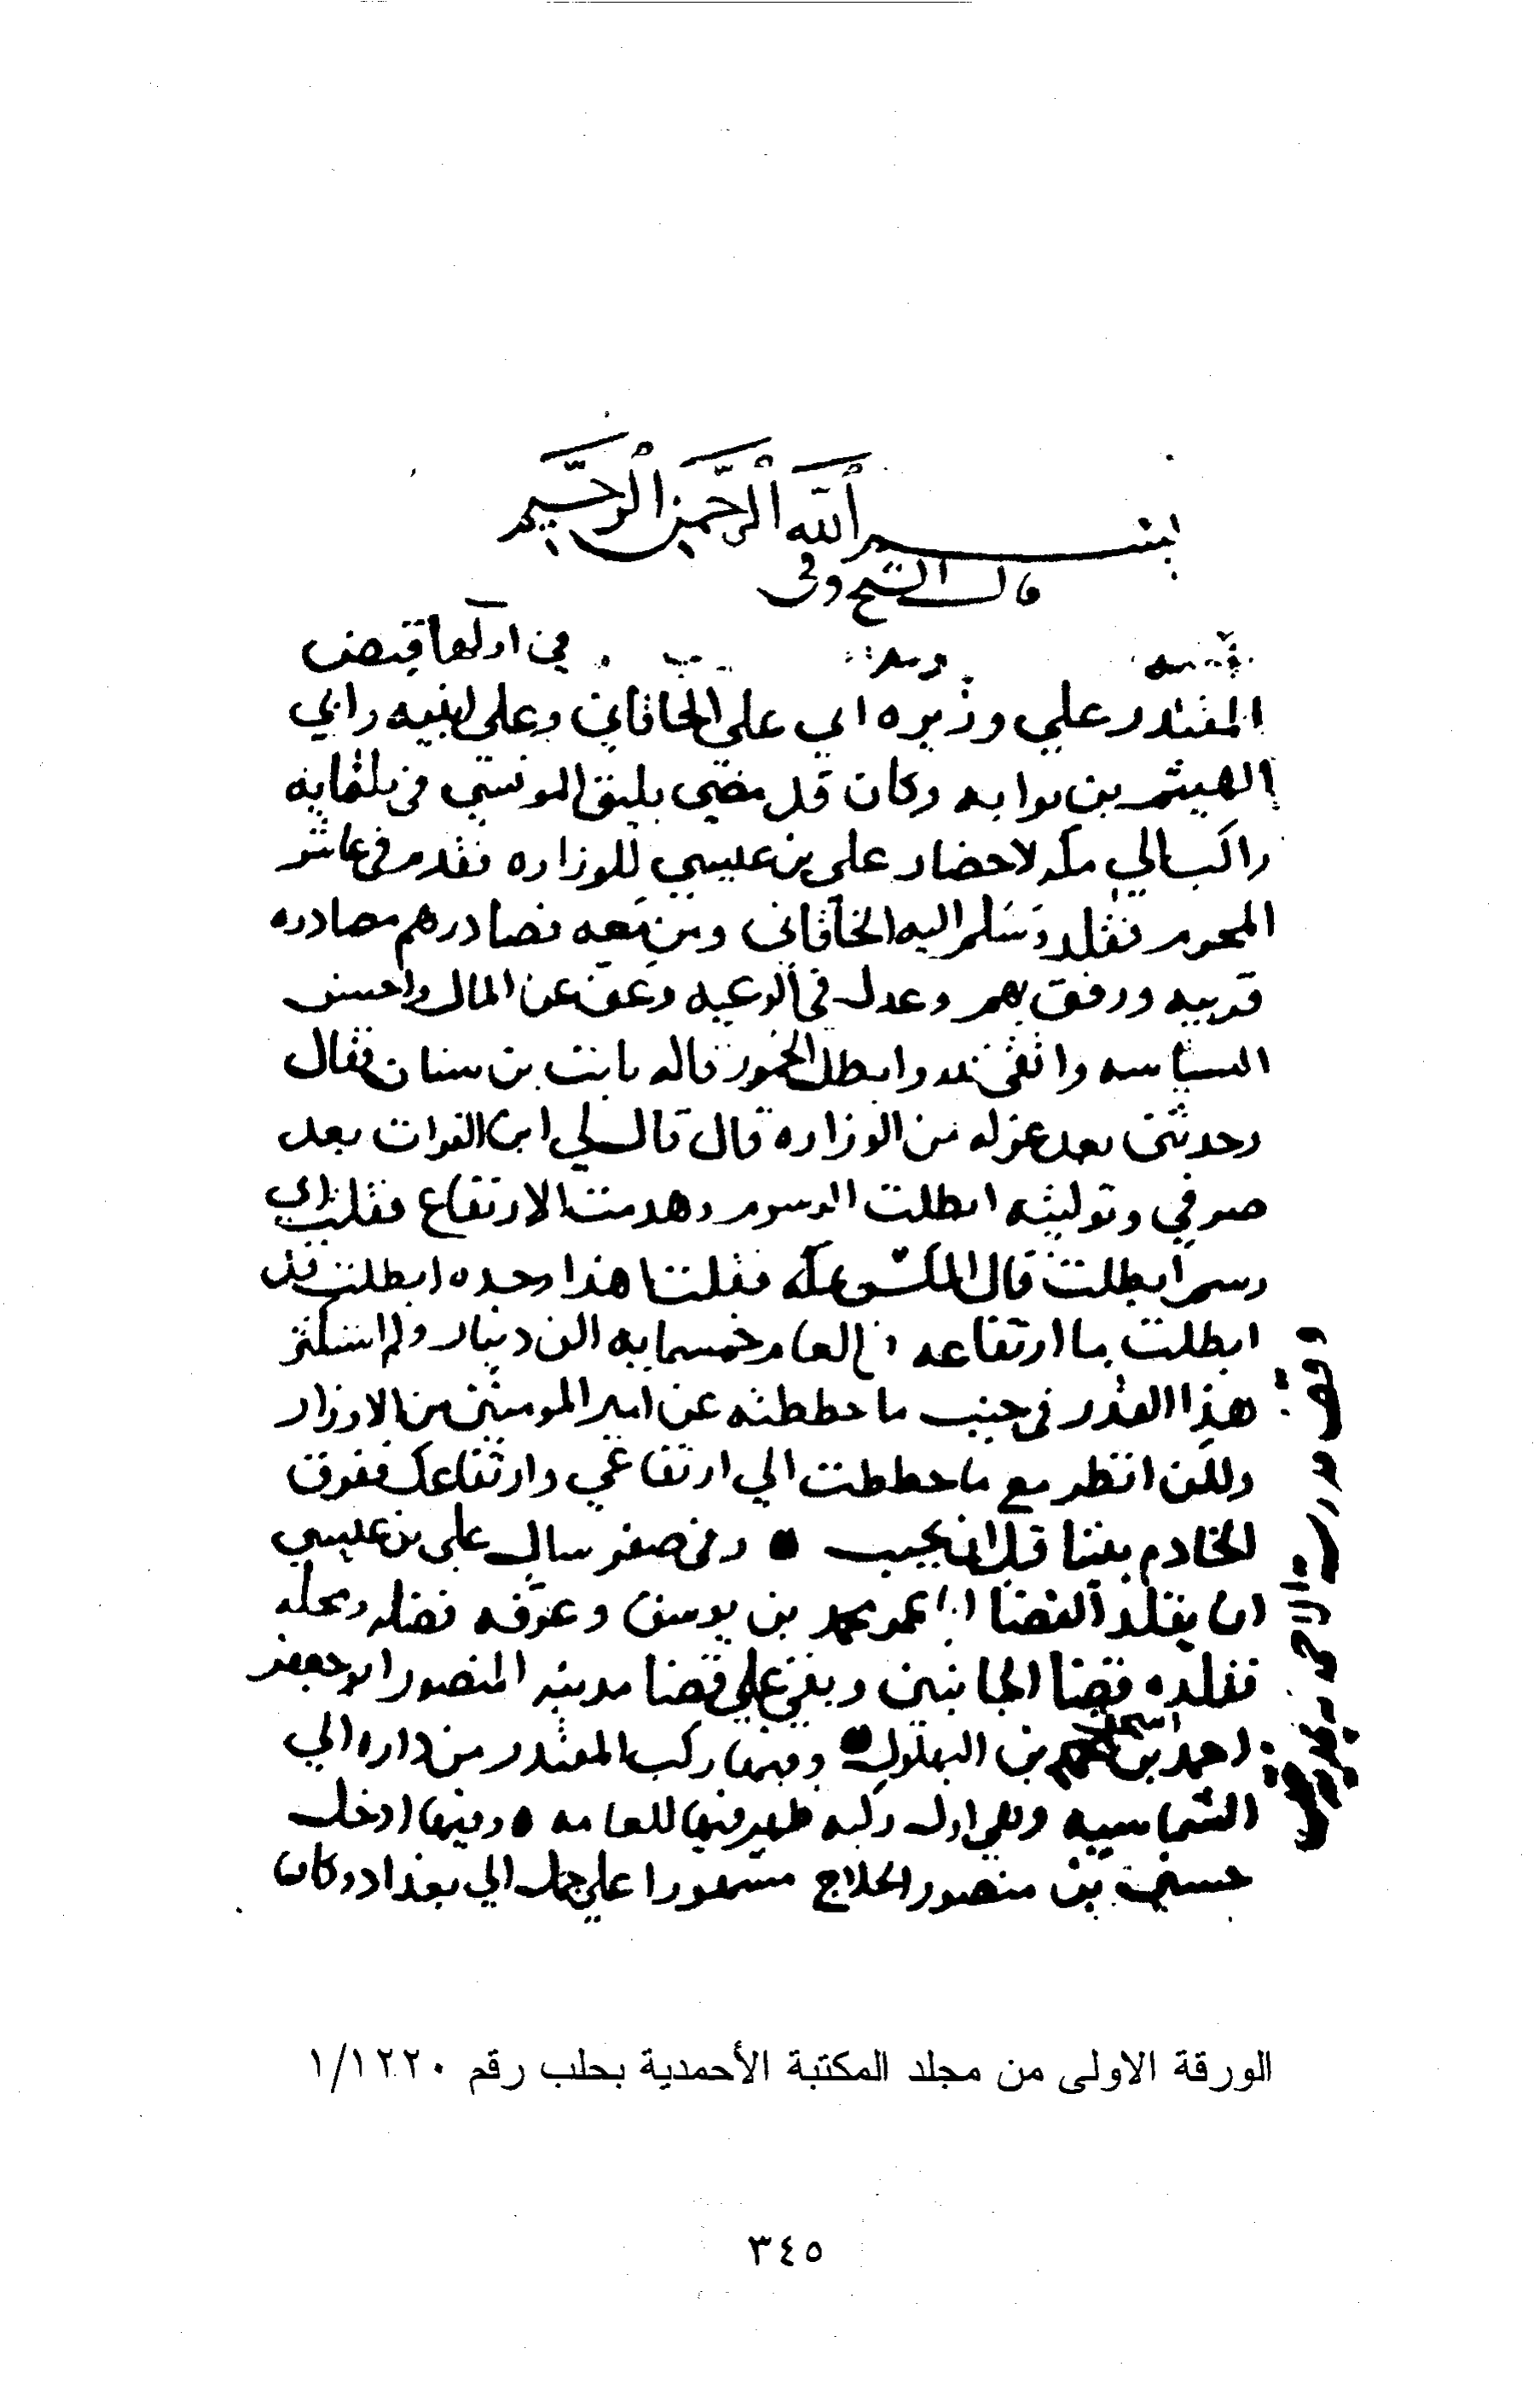 بسم الله الرحمن الرحيم
قال الشيخ
في اولها قبض
المقتدر علي وزيره ابي علي الخاقاني وعلي ابنيه وابي
الهيثم بن ثوابه وكان قد مضي بليق المونسي في ثلثمايه
راكب الي مكه لاحضار علي بن عيسي للوزاره فقدم في عاشر
المحرم فقلد وسلم اليه الخاقاني ومن معه فصادرهم مصادره
قريبه ورفق بهم وعدل في الرعيه وعف عن المال واحسن
السياسه واتقي الله وابطل الخمور قاله ثابت بن سنان فقال
وحدثني بعد عزله من الوزاره قال قال لي ابن الفرات بعد
صرفي وتوليته ابطلت الرسوم وهدمت الارتفاع فقلت اي
رسم ابطلت قال المكس بمكه فقلت هذا وحده ابطلت قد
ابطلت ما ارتفاعه في العام خمسمايه الف دينار ولم استكثر
هذا القدر في جنب ما حططته عن امير المومنين من الاوزار
ولكن انظر مع ما حططت الي ارتفاعي وارتفاعك ففرق
الخادم بيننا قبل ان يجيب • وفي صفر سال علي بن عيسي
ان يقلد القضا ابا عمر محمد بن يوسف وعرفه فضله ومحله
فقلده قضا الجانبين وبقي علي قضا مدينه المنصور ابو جعفر
احمد بن اسحاق بن البهلول • وفيها ركب المقتدر من داره الي
الشماسيه وهي اول ركبه ظهر فيها للعامه • وفيها ادخل
حسين بن منصور الحلاج مشهورا علي جمل الي بغداد وكان
الورقة الاولى من مجلد المكتبة الأحمدية بحلب رقم ١/١٢٢٠
٣٤٥